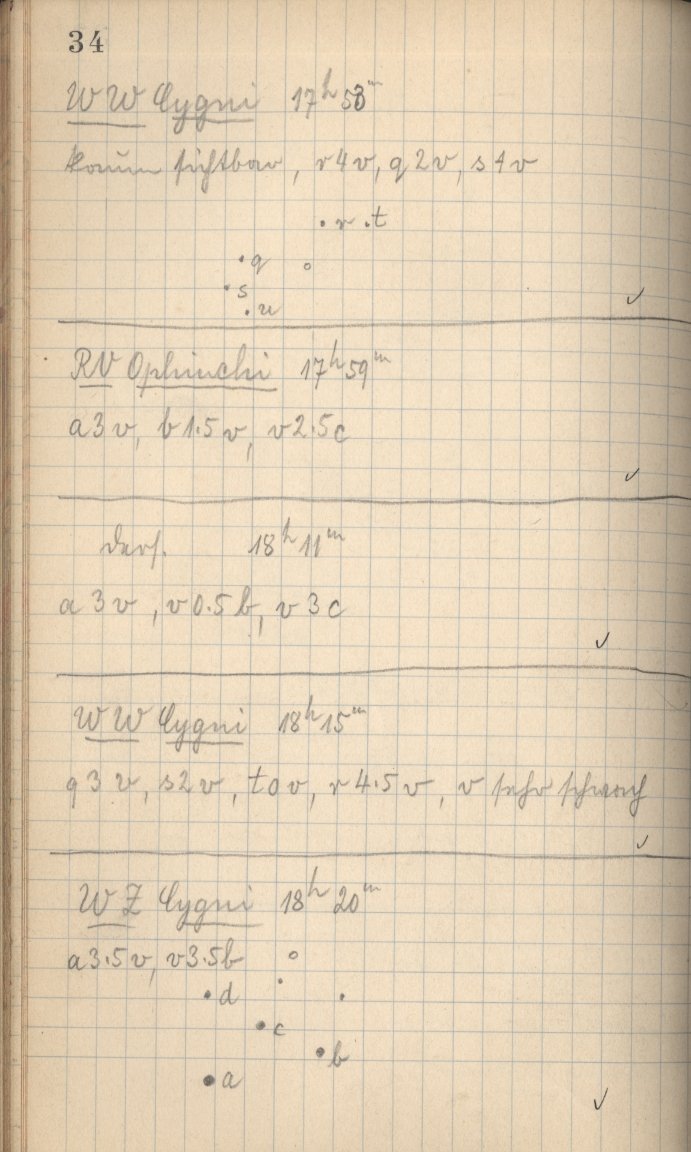 34
WW Cygni 17h 58m
kaum sichtbar, r4v, q2v, s1v
r t
q
s
u
RV Ophiuchi 17h 59m
a3v, b1.5v, v2.5c
ders. 18h 11m
a3v, v0.5b, v3c
WW Cygni 18h 15m
q3v, s2v, t0v, r4.5v, v sehr schwach
WZ Cygni 18h 20m
a3.5v, v3.5b
d
c
b
a